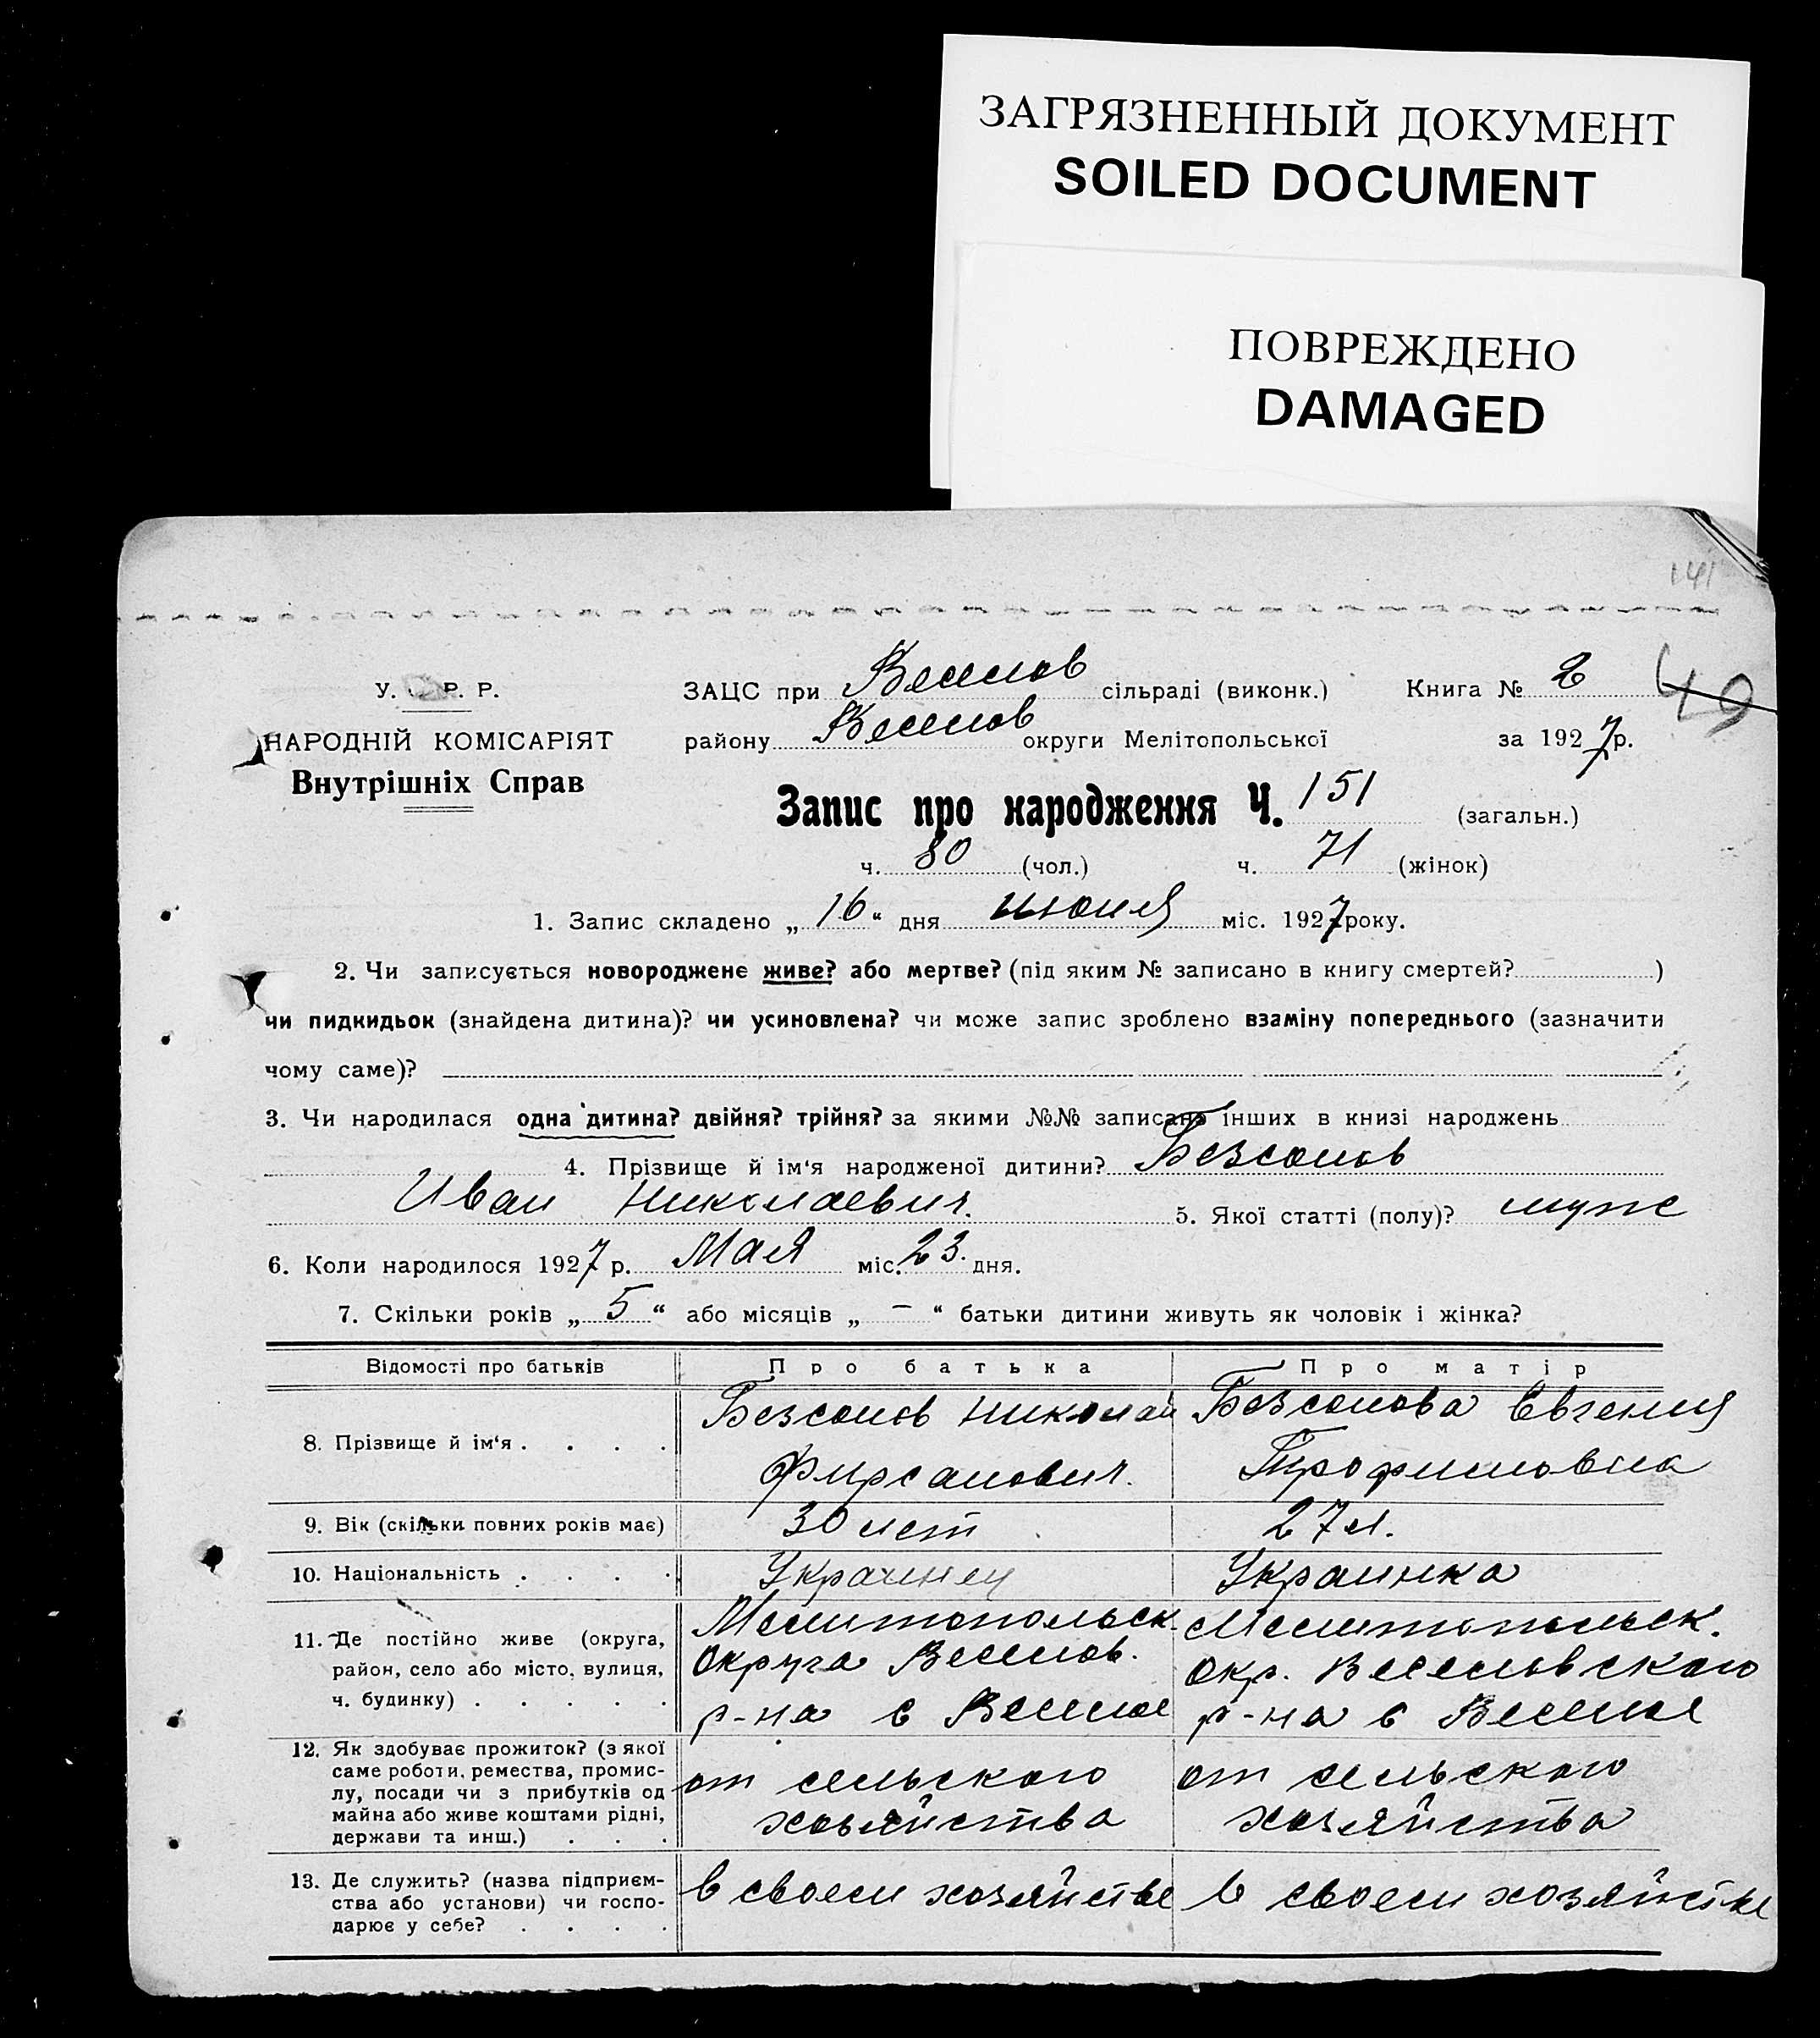 ЗАГРЯЗНЕННЫЙ ДОКУМЕНТ
SOILED DOCUMENT
ПОВРЕЖДЕНО
DAMAGED
141
У. Р. Р.
НАРОДНІЙ КОМІСАРІЯТ
Внутрішніх Справ
ЗАЦС при Веселов сільраді (виконк.) Книга № 2 49
району Веселов округи Мелітопольської за 1927 р.
Запис про народження Ч. 151 (загальн.)
ч. 80 (чол.) ч. 71 (жінок)
1. Запис складено „16“ дня июня міс. 1927 року.
2. Чи записується новороджене живе? або мертве? (під яким № записано в книгу смертей? )
чи пидкидьок (знайдена дитина)? чи усиновлена? чи може запис зроблено взаміну попереднього (зазначити
чому саме)?
3. Чи народилася одна дитина? двійня? трійня? за якими №№ записано інших в книзі народжень
4. Прізвище й ім‘я народженої дитини? Безсонов
Иван Николаевич. 5. Якої статті (полу)? муже
6. Коли народилося 1927 р. Мая міс. 23. дня.
7. Скільки років „5“ або місяців „—“ батьки дитини живуть як чоловік і жінка?
Відомості про батьків Про батька Про матір
8. Прізвище й ім‘я . . . . Безсонов Николай Фирсанович. Безсонова Евгения Трофимовна
9. Вік (скільки повних років має) 30 лет 27 л.
10. Національність . . . . Украинец Украинка
11. Де постійно живе (округа,
район, село або місто, вулиця,
ч. будинку) . . . . .
Мелитопольск.
Округа Веселов.
р-на с Веселое
Мелитопольск.
окр. Веселовского
р-на с Веселое
12. Як здобуває прожиток? (з якої
саме роботи, ремества, промис-
лу, посади чи з прибутків од
майна або живе коштами рідні,
держави та инш.) . . .
от сельского
хозяйства
от сельского
хозяйства
13. Де служить? (назва підприєм-
ства або установи) чи госпо-
дарює у себе? . . . .
в своем хозяйстве
в своем хозяйстве